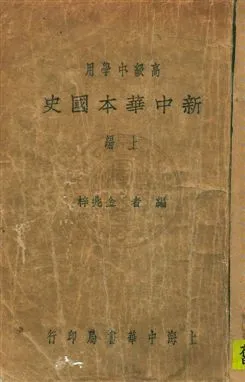 高級中學用
新中華本國史
上編
編者 金兆梓
上海中華書局印行